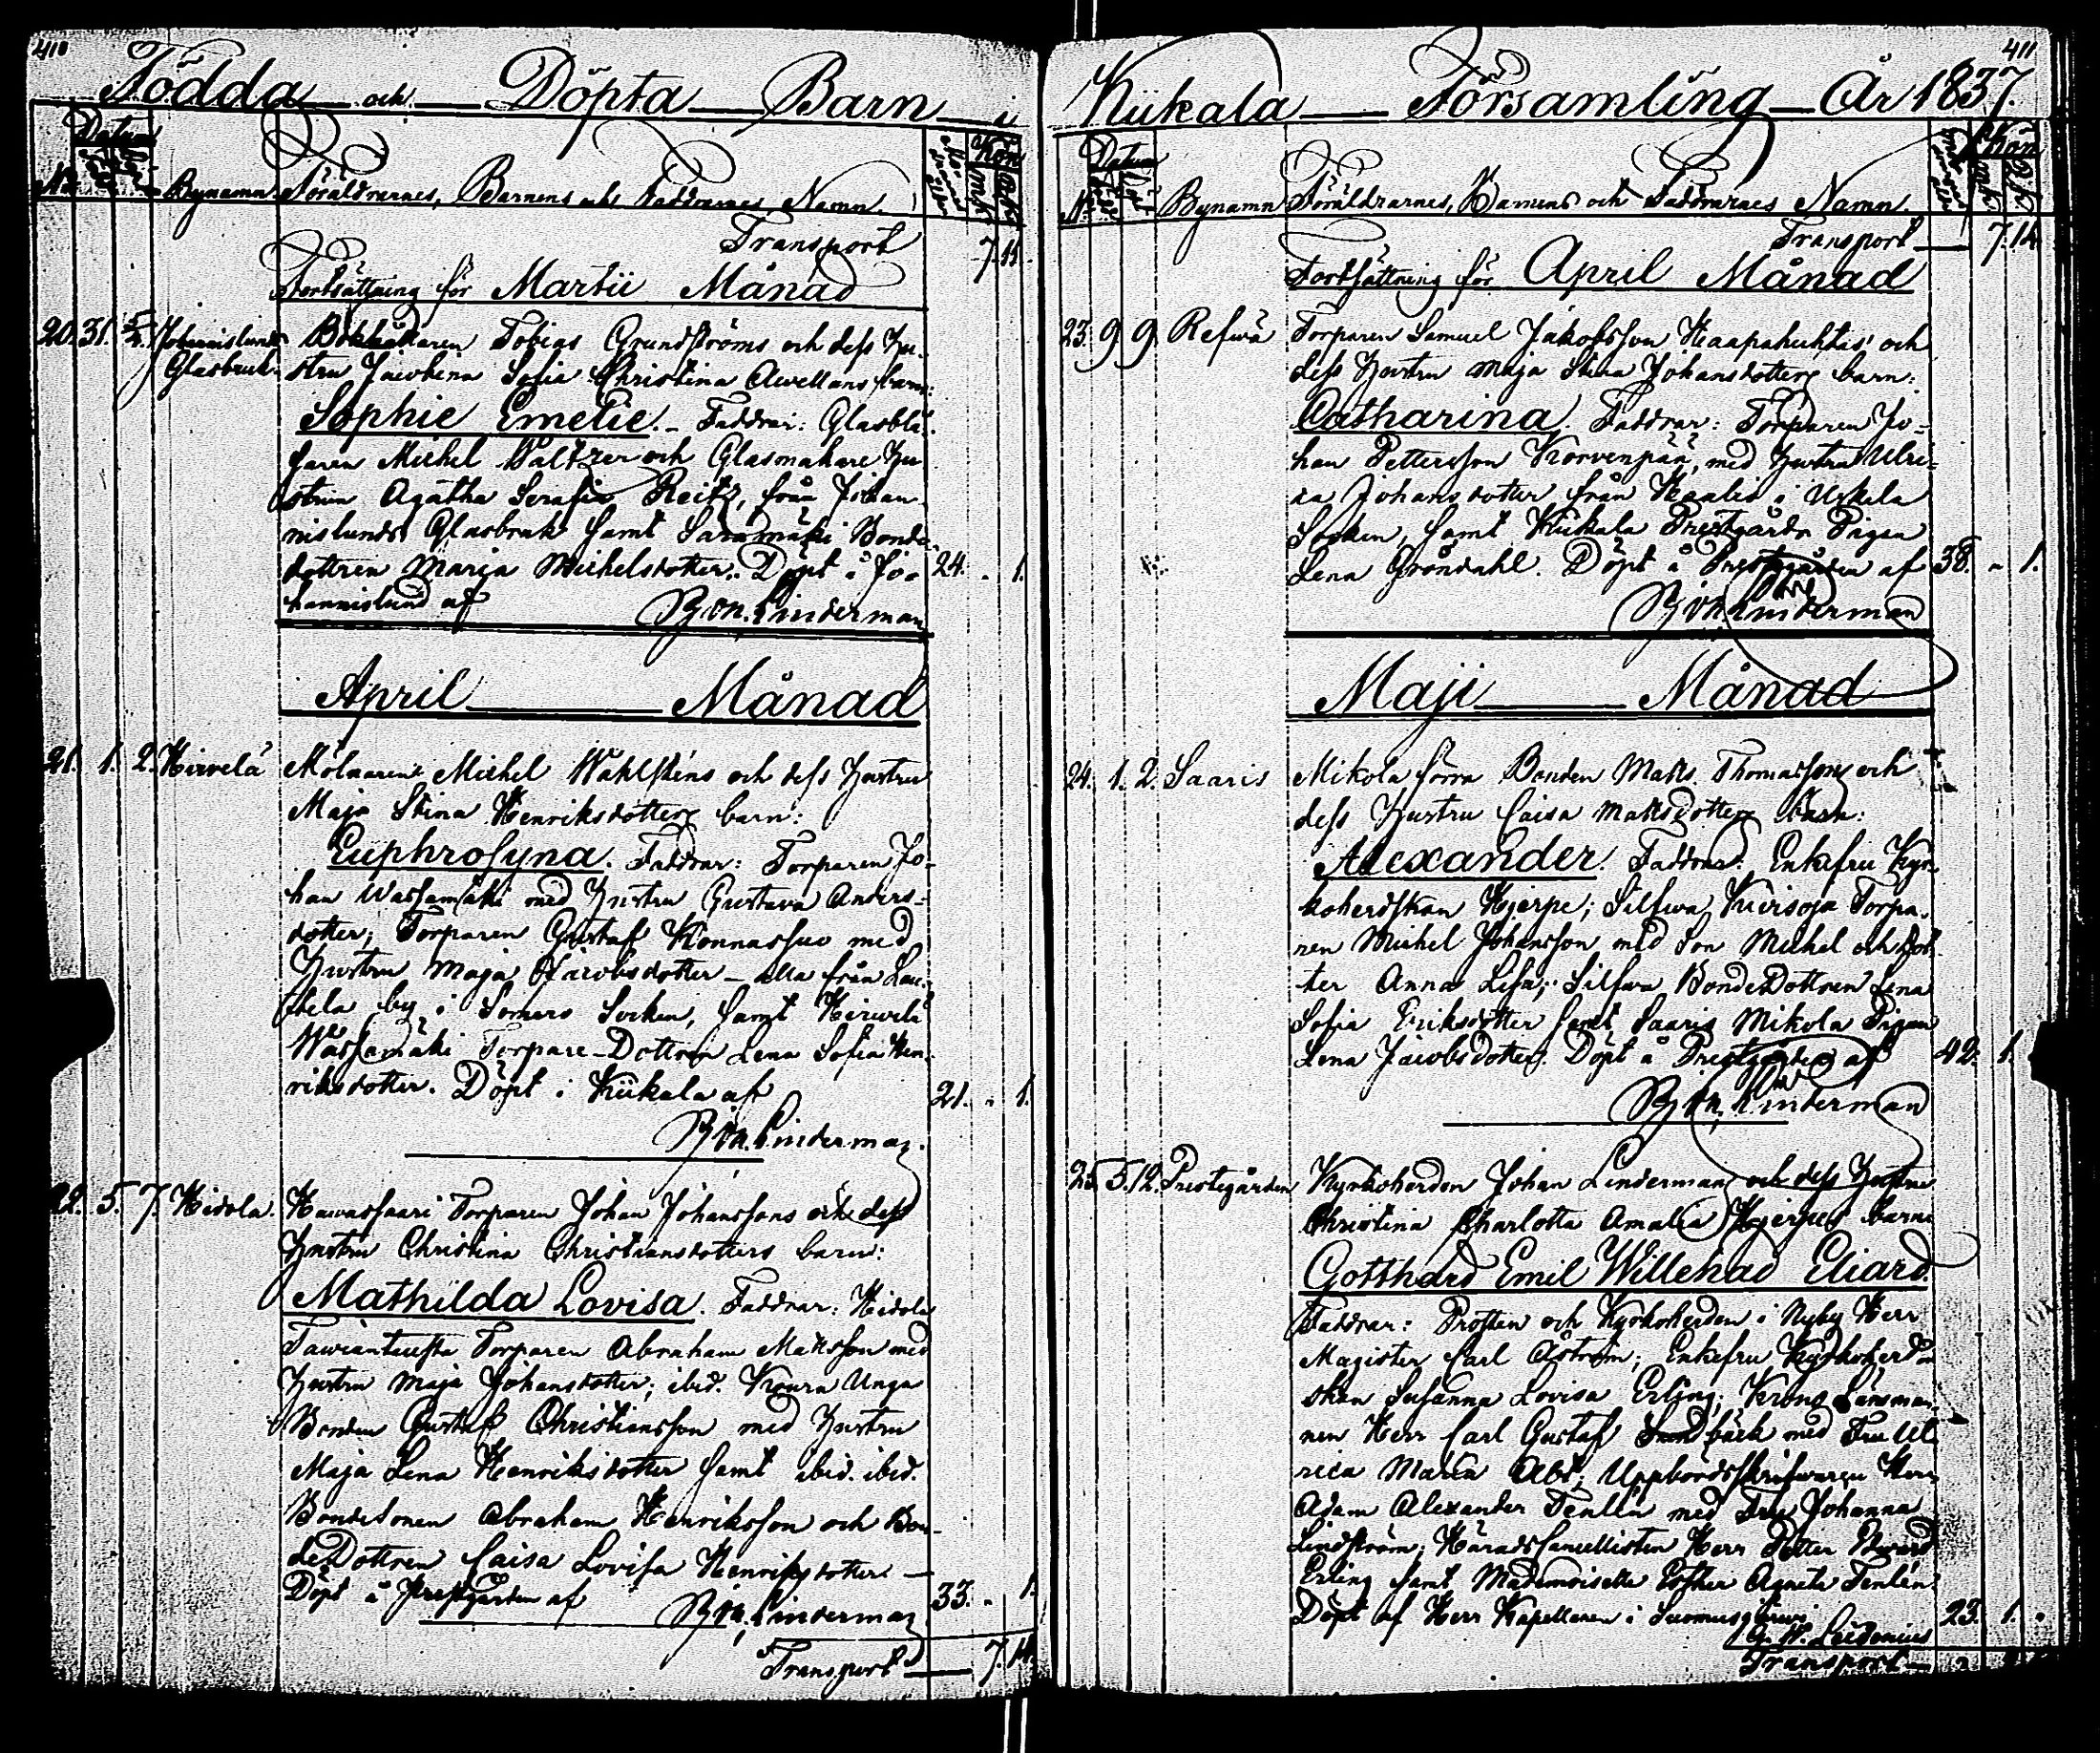 410
Födda och Döpta Barn i
Datum
Kön
No
Bynamn
Föräldrarnes, Barnens och Faddrarnes Namn.
Transport 7. 11.
Fortsättning för Martii Månad
20. 31. Johannislunds Bokhållaren Tobias Grundströms och dess Hu-
Glasbruk stru Jacobina Sofia Christina Awellans barn:
Sophie Emelie. Faddrar: Glasblå-
saren Michel Baltzer och Glasmakare Hu
strun Agatha Serafia Reitz, från Johan
nislunds Glasbruk samt Saramäki Bonde
dottren Maria Michelsdotter. Döpt å Jo- 24. " 1.
hannislund af Joh. Linderman
April Månad
21. 1. 2. Hirvelä Mölnaren Michel Wahlstens och dess Hustru
Maja Stina Henriksdotters barn:
Euphrosyna. Faddrar: Torparen Jo-
han Wassamäki med Hustru Gustava Anders-
dotter; Torparen Gustaf Konnassuo med
Hustru Maja Jacobsdotter – alla från Lau-
by i Somero Socken, samt Hirvelä
Wassamäki Torpare-Dottren Lena Sofia Hen-
riksdotter. Döpt i Kiikala af 21. " 1.
Joh. Linderman.
22. 5. 7. Hidola. Hawassaari Torparen Johan Johanssons och dess
Hustru Christina Christiansdotters barn:
Mathilda Lovisa. Faddrar: Hidola
Torparen Abraham Matsson med
Hustru Maja Johansdotter; ibid. Koura Unga
Bonden Gustaf Christiansson med Hustru
Maja Lena Henriksdotter samt ibid. ibid.
Bondesonen Abraham Henriksson och Bon-
deDottren Caisa Lovisa Henriksdotter –
Döpt å Prestgården af 33. " 1.
Joh. Linderman
Transport 7. 14.
411
Kiikala Församling År 1837.
Datum
Kön
No
Bynamn
Föräldrarnes, Barnens och Faddrarnes Namn.
Transport 7. 14.
Fortsättning för April Månad
23. 9. 9. Rekwä Torparen Samuel Jakobsson Haapahuhtas och
dess Hustru Maja Stina Johansdotters barn:
Catharina. Faddrar: Torparen Jo-
han Pettersson Korvenpää, med Hustru Ulri-
ka Johansdotter från i Uskela
Socken, samt Kiikala Prestgårds Pigan
Lena Gröndahl. Döpt å Prestgården af 38. " 1.
Joh. Linderman
Maji Månad
24. 1. 2. Saaris Mikola förra Bonden Matts Thomassons och
dess Hustru Caisa Mattsdotters barn:
Alexander. Faddrar: Enkefru Kyr-
koherdskan Hjerpe; Silfwa Kivisoja Torpa-
ren Michel Johansson med Son Michel och Dot-
ter Anna Lisa; Silfwa BondeDottren Lena
Sofia Eriksdotter samt Saaris Mikola Pigan
Lena Jacobsdotter. Döpt å Prestgården af 42. 1.
Joh. Linderman
25. 5. 12. Prestegården Kyrkoherden Johan Lindermans och dess Hustru
Christina Charlotta Amalia Hjerpes barn:
Gotthard Emil Willehad Eliard.
Faddrar: Prosten och Kyrkoherden i Nyby Herr
Magister Carl Åström; Enkefru Kyrkoherd-
skan Susanna Lovisa Erling; Krono Länsman-
nen Herr Carl Gustaf Sundbäck med Fru Ul-
rica Maria Abt; Uppbördsskrifwaren Herr
Adam Alexander Tenlén med Fru Johanna
Lindström; Häradscancellisten Herr Petter Edward
Erling samt Mademoiselle Esther Agneta Tenlén.
Döpt af Herr Kapellanen i Suomusjärwi 23. 1. "
Transport